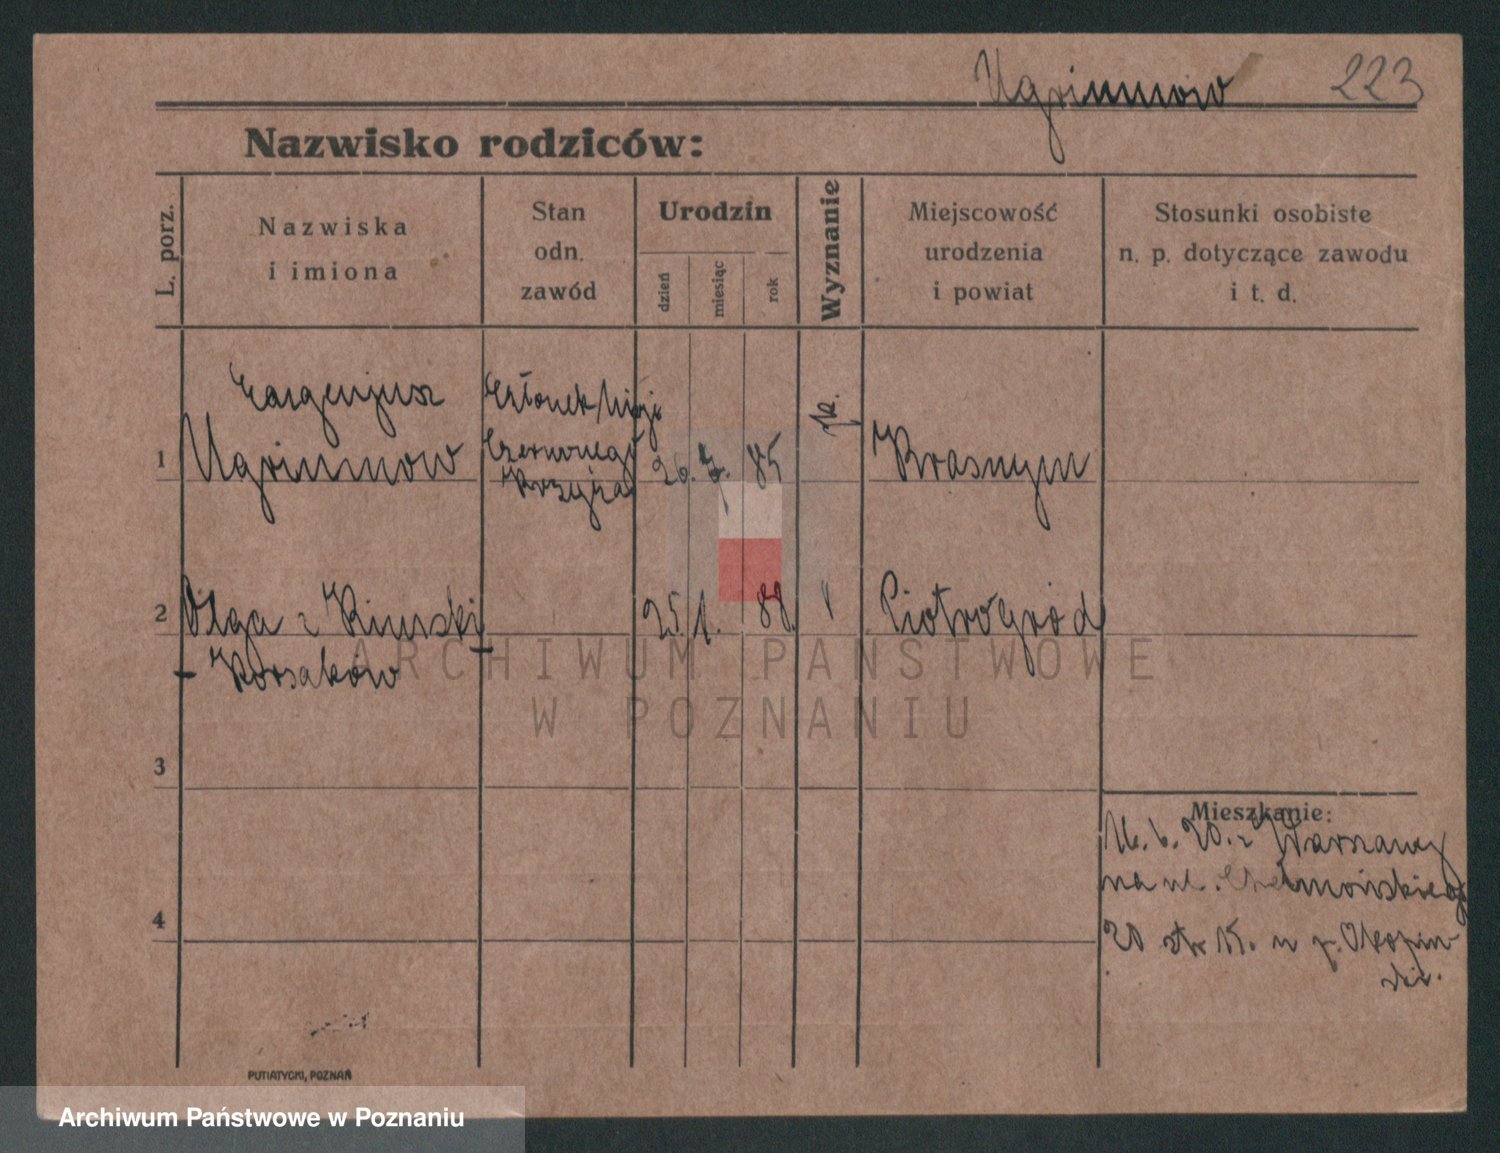 Ugrinmow 223
Nazwisko rodziców:
L. porz.
Nazwiska
i imiona
Stan
odn.
zawód
Urodzin
dzień
miesiąc
rok
Wyznanie
Miejscowość
urodzenia
i powiat
Stosunki osobiste
n. p. dotyczące zawodu
i t. d.
1
Ugrinmow
Członek
Czerwonego
Krzyża
26. 85
2
Olga z
Korsaków
25. 1.
Piotrogród
3
4
Mieszkanie:
16. 6. 20. z Warszawy
na ul. Chełmońskiego
20 str 15. u p. Okopiń-
ski.
PUTIATYCKI, POZNAŃ
ARCHIWUM PAŃSTWOWE
W POZNANIU
Archiwum Państwowe w Poznaniu